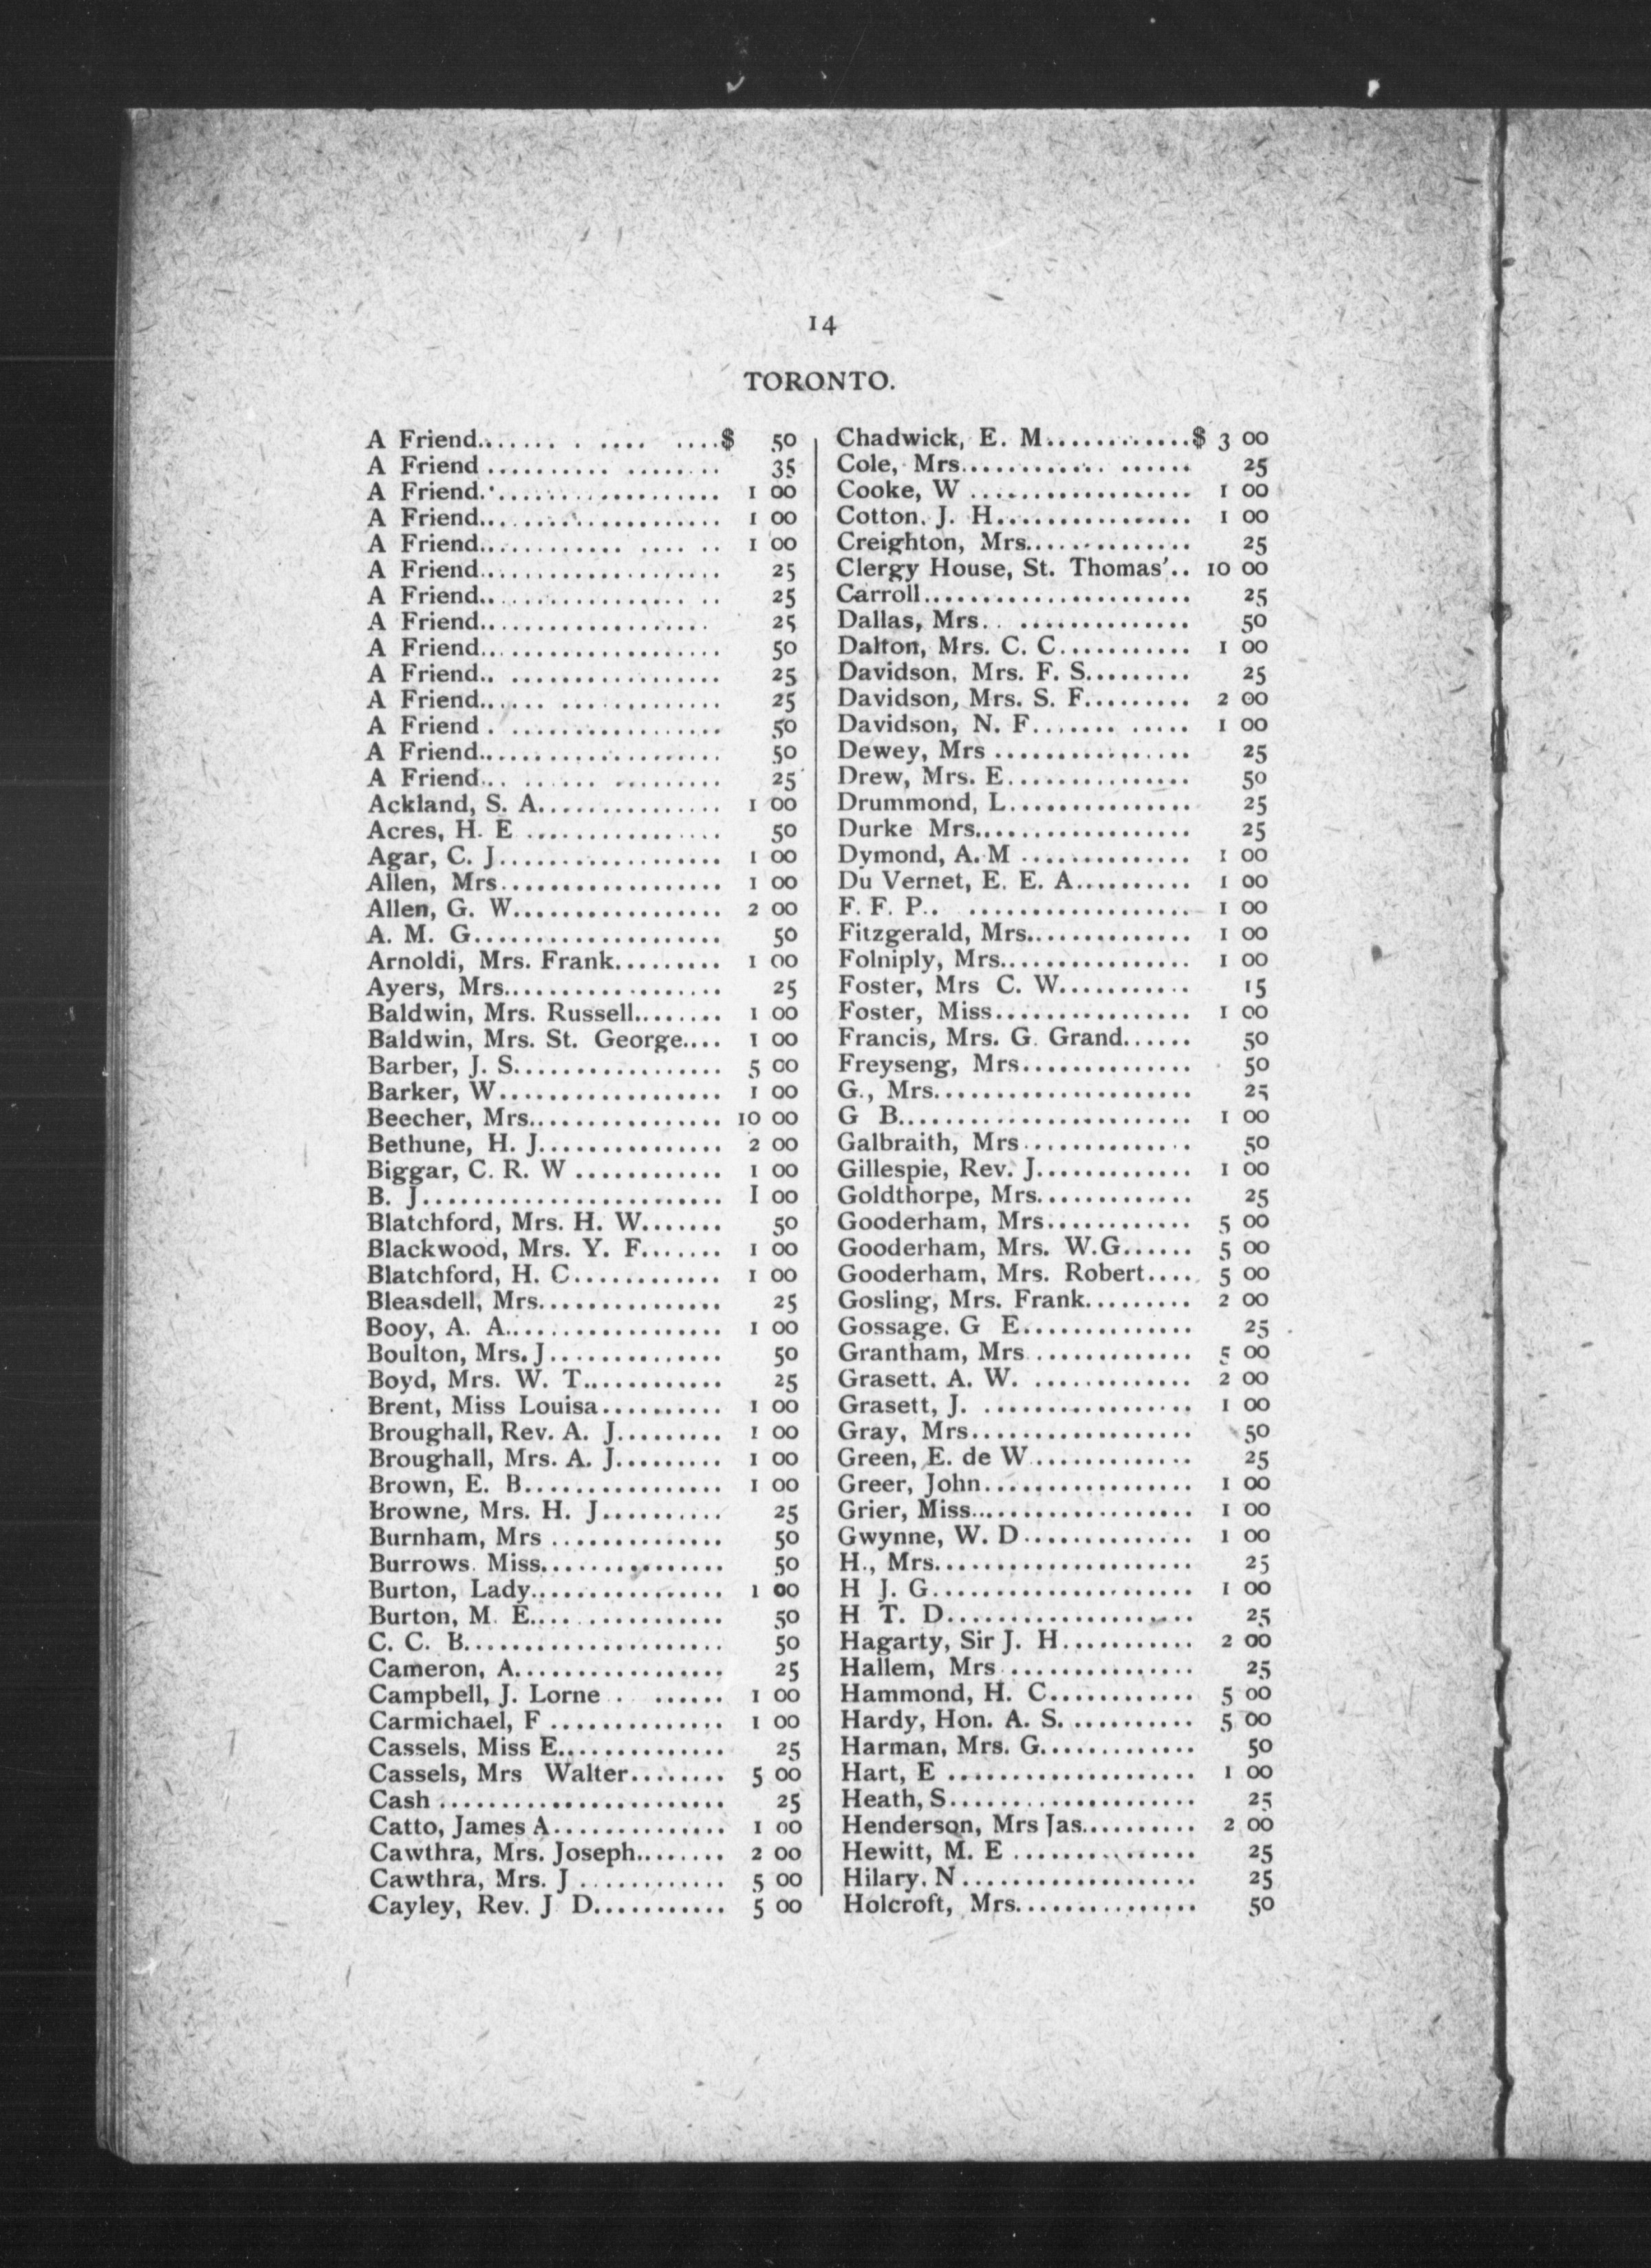 14
TORONTO.
A Friend.......... . .... ....$ 50
A Friend .......... ........ 35
A Friend.................... 1 00
A Friend.................... 1 00
A Friend............. .... .. 1 00
A Friend.................... 25
A Friend................. .. 25
A Friend................... 25
A Friend.................... 50
A Friend.. ................. 25
A Friend...... ............. 25
A Friend . .................. 50
A Friend.................... 50
A Friend... ...... ......... 25
Ackland, S. A............... 1 00
Acres, H. E ................ 50
Agar, C. J.................. 1 00
Allen, Mrs.................. 1 00
Allen, G. W................. 2 00
A. M. G.................... 50
Arnoldi, Mrs. Frank......... 1 00
Ayers, Mrs.................. 25
Baldwin, Mrs. Russell........ 1 00
Baldwin, Mrs. St. George.... 1 00
Barber, J. S................. 5 00
Barker, W.................. 1 00
Beecher, Mrs................ 10 00
Bethune, H. J............... 2 00
Biggar, C. R. W ............ 1 00
B. J........................ 1 00
Blatchford, Mrs. H. W....... 50
Blackwood, Mrs. Y. F....... 1 00
Blatchford, H. C............ 1 00
Bleasdell, Mrs............... 25
Booy, A. A.................. 1 00
Boulton, Mrs. J.............. 50
Boyd, Mrs. W. T............ 25
Brent, Miss Louisa.......... 1 00
Broughall, Rev. A. J......... 1 00
Broughall, Mrs. A. J......... 1 00
Brown, E. B................ 1 00
Browne, Mrs. H. J.......... 25
Burnham, Mrs .............. 50
Burrows. Miss............... 50
Burton, Lady................ 1 00
Burton, M. E................ 50
C. C. B..................... 50
Cameron, A................. 25
Campbell, J. Lorne . ...... 1 00
Carmichael, F .............. 1 00
Cassels, Miss E.............. 25
Cassels, Mrs Walter........ 5 00
Cash ....................... 25
Catto, James A.............. 1 00
Cawthra, Mrs. Joseph........ 2 00
Cawthra, Mrs. J ............ 5 00
Cayley, Rev. J D........... 5 00
Chadwick, E. M............$ 3 00
Cole, Mrs............ ...... 25
Cooke, W .................. 1 00
Cotton. J. H................ 1 00
Creighton, Mrs.............. 25
Clergy House, St. Thomas'.. 10 00
Carroll...................... 25
Dallas, Mrs. . .............. 50
Dalton, Mrs. C. C........... 1 00
Davidson, Mrs. F. S......... 25
Davidson, Mrs. S. F......... 2 00
Davidson, N. F....... ..... 1 00
Dewey, Mrs ................ 25
Drew, Mrs. E............... 50
Drummond, L............... 25
Durke Mrs.................. 25
Dymond, A. M .............. 1 00
Du Vernet, E. E. A.......... 1 00
F. F. P.. .................. 1 00
Fitzgerald, Mrs.............. 1 00
Folniply, Mrs................ 1 00
Foster, Mrs C. W........... 15
Foster, Miss................ 1 00
Francis, Mrs. G. Grand...... 50
Freyseng, Mrs.............. 50
G., Mrs..................... 25
G B........................ 1 00
Galbraith, Mrs.............. 50
Gillespie, Rev. J............. 1 00
Goldthorpe, Mrs............. 25
Gooderham, Mrs............ 5 00
Gooderham, Mrs. W.G...... 5 00
Gooderham, Mrs. Robert.... 5 00
Gosling, Mrs. Frank......... 2 00
Gossage. G E.............. 25
Grantham, Mrs ............. 5 00
Grasett. A. W. ............. 2 00
Grasett, J. ................. 1 00
Gray, Mrs.................. 50
Green, E. de W............. 25
Greer, John................. 1 00
Grier, Miss.................. 1 00
Gwynne, W. D.............. 1 00
H., Mrs..................... 25
H J. G..................... 1 00
H T. D.................... 25
Hagarty, Sir J. H........... 2 00
Hallem, Mrs ............... 25
Hammond, H. C............ 5 00
Hardy, Hon. A. S. .......... 5 00
Harman, Mrs. G............. 50
Hart, E .................... 1 00
Heath, S.................... 25
Henderson, Mrs Jas.......... 2 00
Hewitt, M. E ............... 25
Hilary. N................... 25
Holcroft, Mrs............... 50